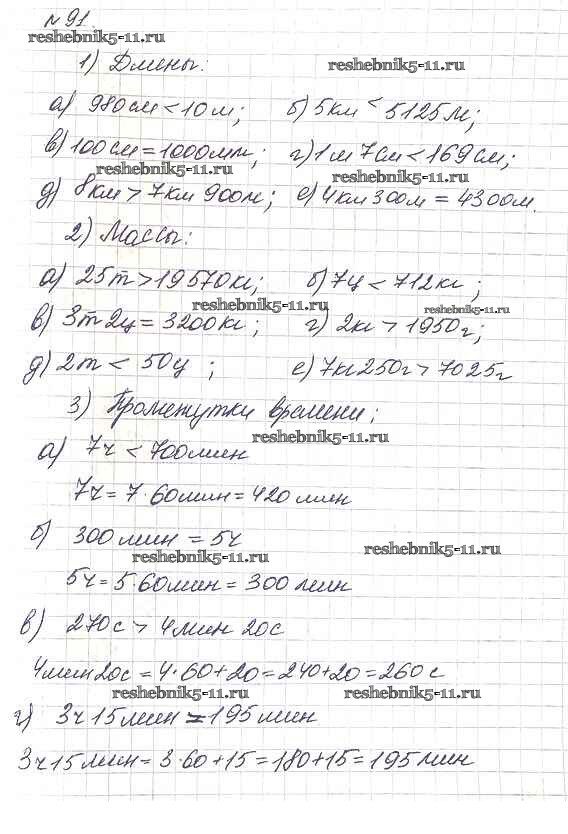 № 91.
reshebnik5-11.ru
1) Длины:
reshebnik5-11.ru
а) 980см < 10м; б) 5км < 5125м;
в) 100см = 1000мм; г) 1м 7см < 169см;
reshebnik5-11.ru reshebnik5-11.ru
д) 8км > 7км 900м; е) 4км 300м = 4300м.
2) Массы:
а) 25т > 19570кг; б) 7ц < 712кг;
reshebnik5-11.ru reshebnik5-11.ru
в) 3т 2ц = 3200кг; г) 2кг > 1950г;
д) 2т < 50ц; е) 7кг 250г > 7025г
3) Промежутки времени:
reshebnik5-11.ru
а) 7ч < 700мин
7ч = 7·60мин = 420мин
б) 300мин = 5ч
reshebnik5-11.ru reshebnik5-11.ru
5ч = 5·60мин = 300мин
в) 270с > 4мин 20с
4мин 20с = 4·60+20 = 240+20 = 260с
reshebnik5-11.ru reshebnik5-11.ru
г) 3ч 15мин = 195мин
3ч 15мин = 3·60+15 = 180+15 = 195мин